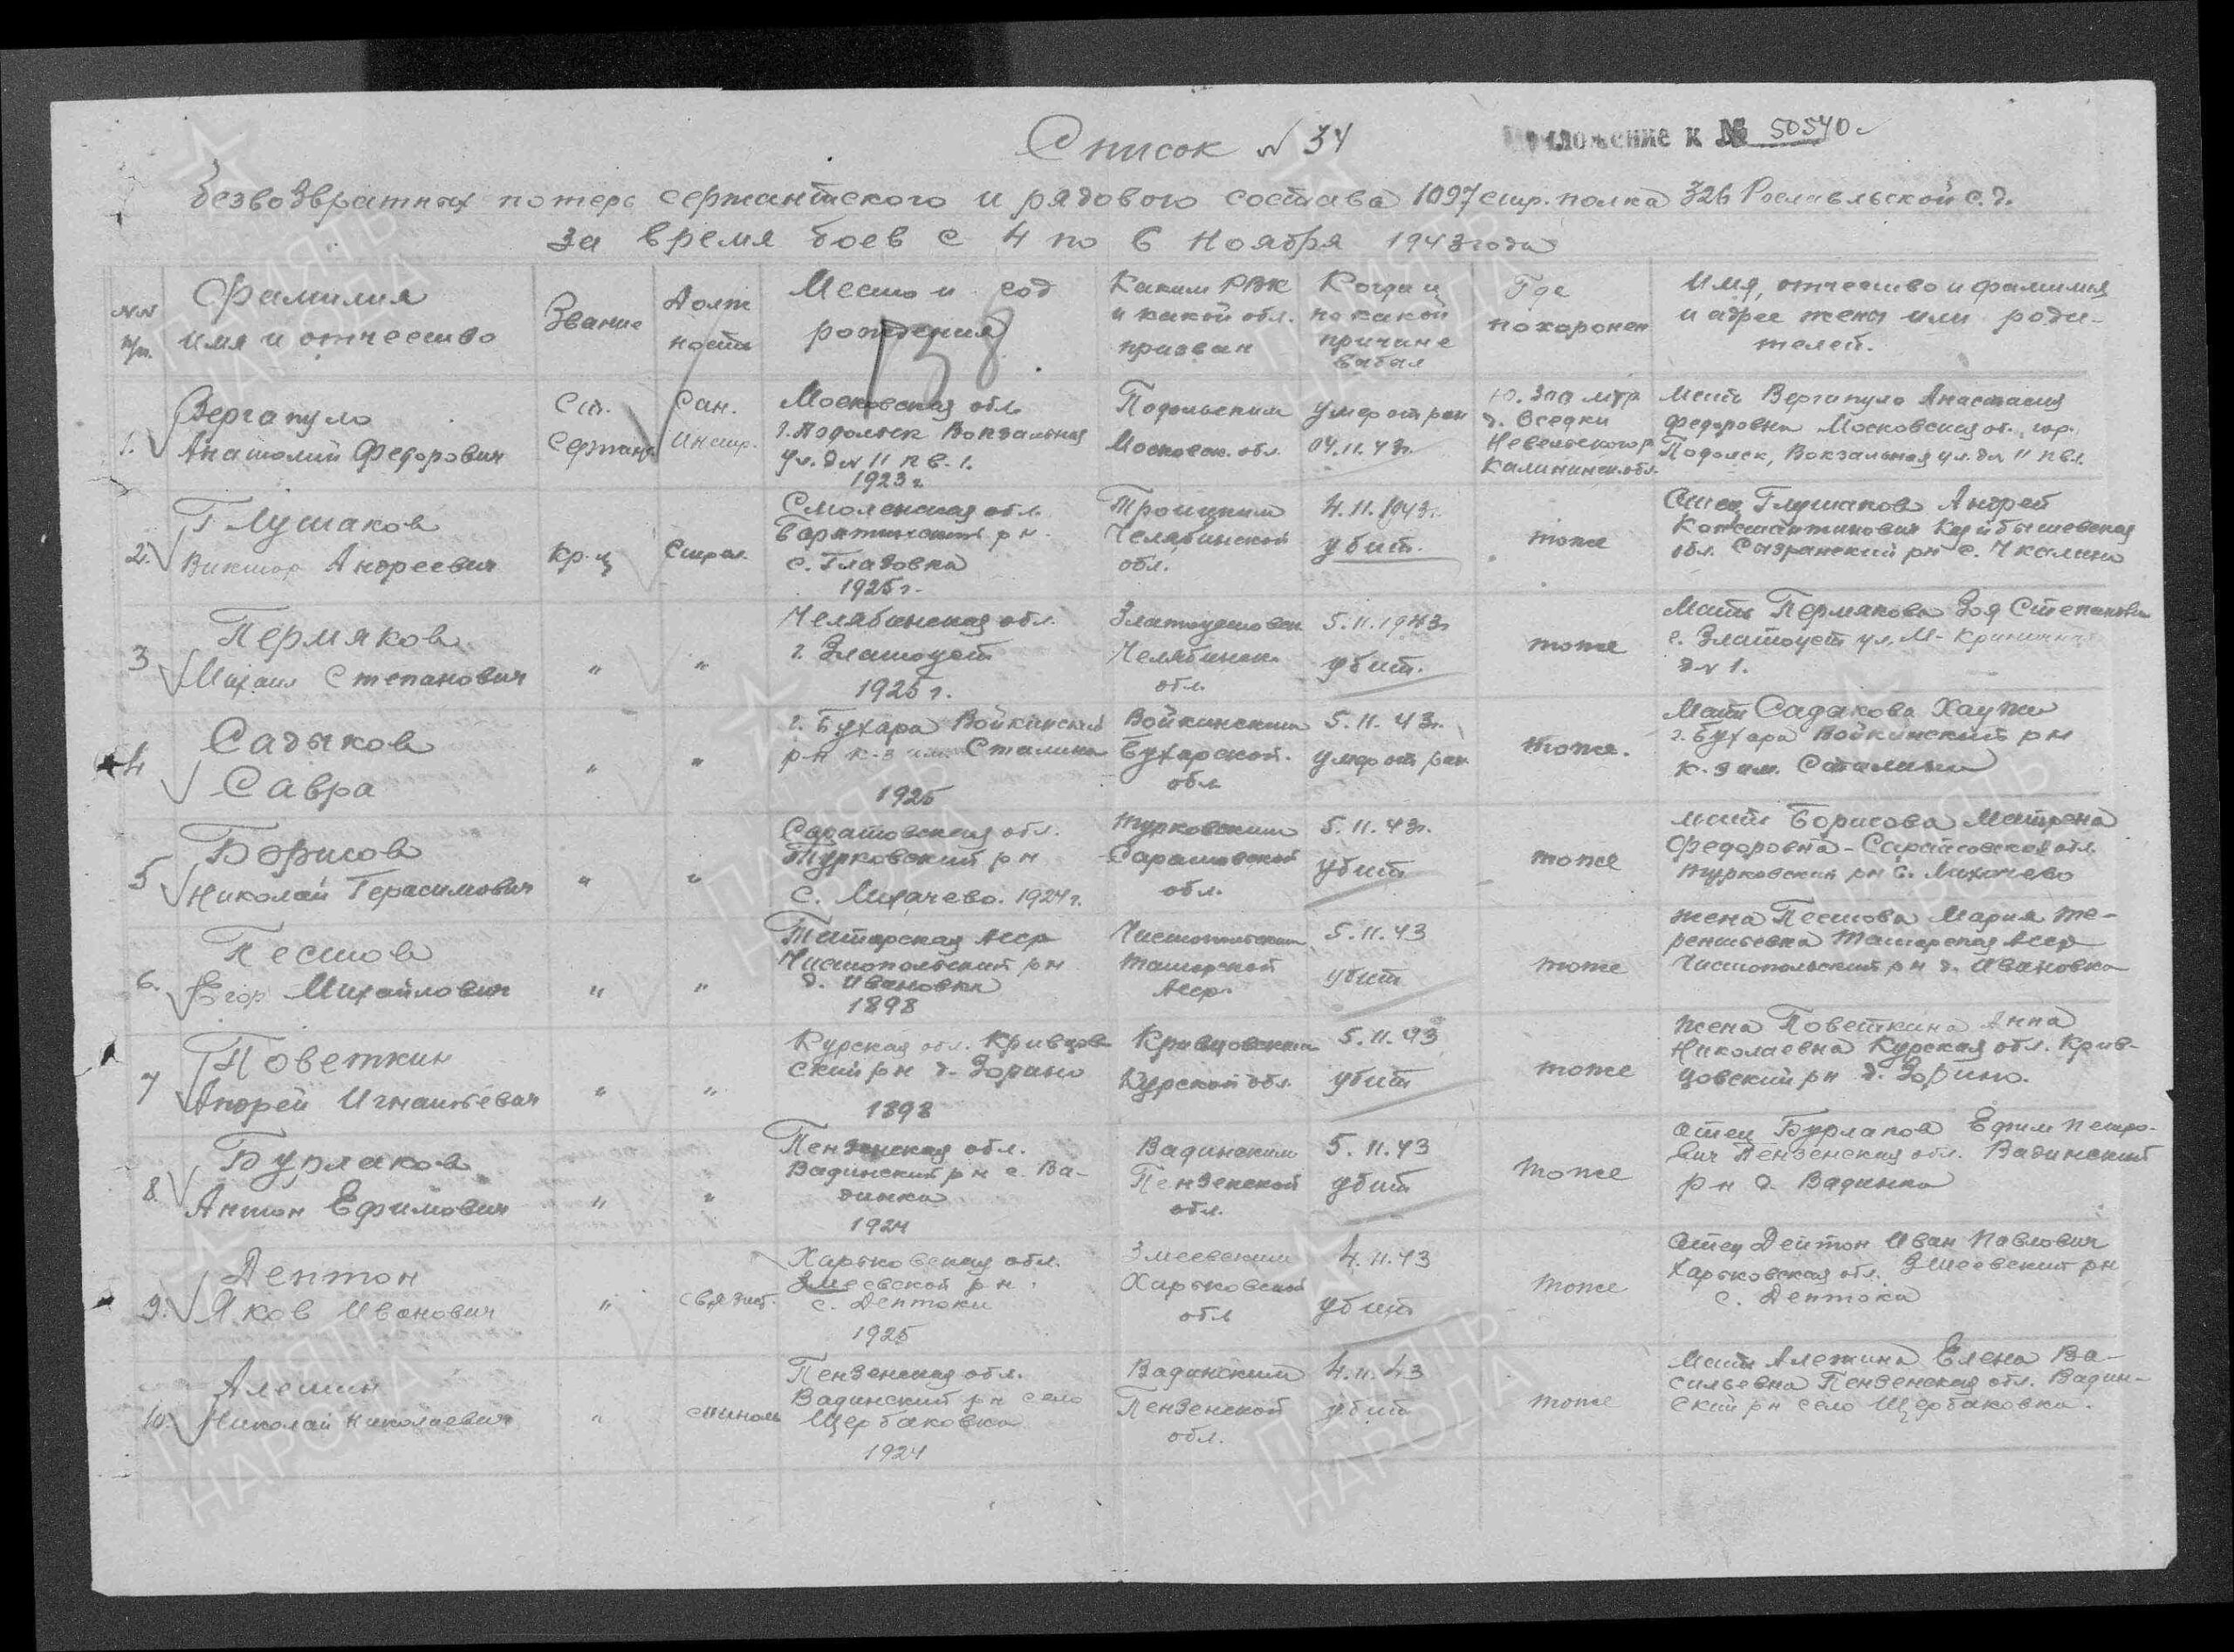 Список № 34
Приложение к № 50540
безвозвратных потерь сержантского и рядового состава 1097 стр. полка 326 Рославльской с.д.
за время боев с 4 по 6 Ноября 1943 года
№№ п/п.
Фамилия
имя и отчество
Звание
Долж
ность
Место и год
рождения
138
Каким РВК
и какой обл.
призван
Когда и
по какой
причине
выбыл
Где
похоронен
Имя, отчество и фамилия
и адрес жены или роди-
телей.
1.
Вергапуло
Анатолий Федорович
Ст.
Сержант
Сан.
Инстр.
Московская обл.
г. Подольск Вокзальная
ул. д № 11 кв. 1.
1923 г.
Подольским
Московск. обл.
умер от ран
04.11.43г.
Ю. Зап
д. Оседки
Невельского р
Калининск. обл.
Мать Вергапуло Анастасия
Федоровна Московская об. гор.
Подольск, Вокзальная ул. д № 11 кв 1.
2.
Глушаков
Виктор Андреевич
Кр-ц
Стрел.
Смоленская обл.
р-н.
с. Гладовка
1925 г.
Троицким
Челябинской
обл.
4.11.1943г.
убит.
тоже
Отец Глушаков Андрей
Константинович Куйбышевская
обл. Сызранский рн с. Чкалино
3
Пермяков
Михаил Степанович
"
"
Челябинская обл.
г. Златоуст
1925 г.
Златоустовск
Челябинск.
обл.
5.11.1943г
убит.
тоже
Мать Пермякова Зоя Степановна
г. Златоуст ул. М-
д № 1.
4
Садыков
Савра
"
"
г. Бухара Войкинский
р-н к-з им. Сталина
1925
Войкинским
Бухарской.
обл.
5.11.43г.
умер от ран
тоже.
Мать Садыкова
г. Бухара Войкинский рн
к-з им. Сталина
5
Борисов
Николай Герасимович
"
"
Саратовская обл.
Турковский р н
с. Лихачево. 1924 г.
Турковским
Саратовской
обл.
5.11.43г.
убит
тоже
мать Борисова Матрена
Федоровна - Саратовская обл.
Турковский рн С. Лихачево
6.
Пестов
Егор Михайлович
"
"
Татарская Асср
Чистопольский рн
д. Ивановка
1898
Чистопольским
Татарской
Асср.
5.11.43
убит
тоже
жена Пестова Мария Те-
рентьевна Татарская Асср
Чистопольский рн д. Ивановка
7
Поветкин
Андрей Игнатьевич
"
"
Курская обл. Кривцов
ский рн д. Зорино
1898
Кривцовским
Курской обл.
5.11.43
убит
тоже
жена Поветкина Анна
Николаевна Курская обл. Крив-
цовский рн д. Зорино.
8.
Бурлаков
Антон Ефимович
"
"
Пензенская обл.
Вадинский рн с. Ва-
динка
1924
Вадинским
Пензенской
обл.
5.11.43
убит
тоже
отец Бурлаков Ефим Петро-
вич Пензенская обл. Вадинский
р-н д. Вадинка
9.
Дептон
Яков Иванович
"
связист.
Харьковская обл.
Змеевской рн.
с. Дептоки
1925
Змеевским
Харьковской
обл
4.11.43
убит
тоже
отец Дептон Иван Павлович
Харьковская обл. Змеевский рн
с. Дептока
10.
Алешин
Николай Николаевич
"
Пензенская обл.
Вадинский рн село
Щербаковка
1924
Вадинским
Пензенской
обл.
4.11.43
убит
тоже
Мать Алешина Елена Ва-
сильевна Пензенская обл. Вадин-
ский рн село Щербаковка.
ПАМЯТЬ
НАРОДА